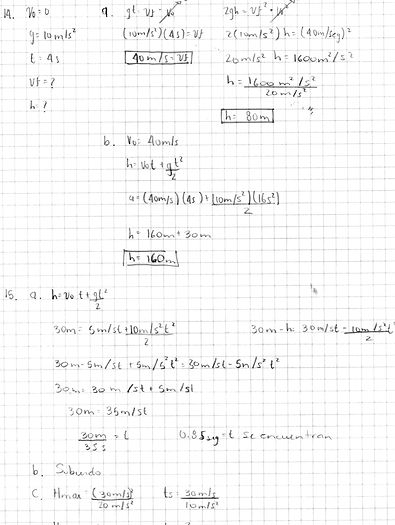 14. V₀ = 0
g = 10 m/s²
t = 4s
Vf = ?
h = ?
a. gt = Vf - V₀
(10 m/s²)(4s) = Vf
40 m/s = Vf
2gh = Vf² - V₀²
2(10 m/s²) h = (40 m/seg)²
20 m/s² h = 1600 m²/s²
h = 1600 m²/s² / 20 m/s²
h = 80m
b. V₀ = 40 m/s
h = V₀t + gt²/2
a = (40 m/s)(4s) + (10 m/s²)(16s²)/2
h = 160m + 30m
h = 160m
15. a. h = V₀ t + gt²/2
30m = 5 m/s t + 10 m/s² t²/2
30m - h = 30 m/s t - 10 m/s² t²/2
30m - 5m/s t + 5m/s² t² = 30m/s t - 5m/s² t²
30m = 30 m/s t + 5m/s t
30m = 35m/s t
30m / 35 s = t
0.85 seg = t se encuentran
b. Subiendo
C. Hmax = (30 m/s)² / 20 m/s²
ts = 30 m/s / 10 m/s²